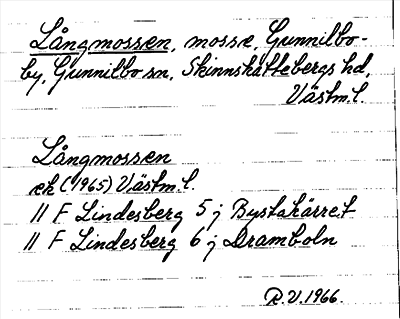 Långmossen, mosse, Gunnilbo-
by, Gunnilbo sn, Skinnskattebergs hd,
Västm.l.
Långmossen
ek (1965) Västm.l.
// F Lindesberg 5 j Bystakärret
// F Lindesberg 6 j Dramboln
R.V. 1966.